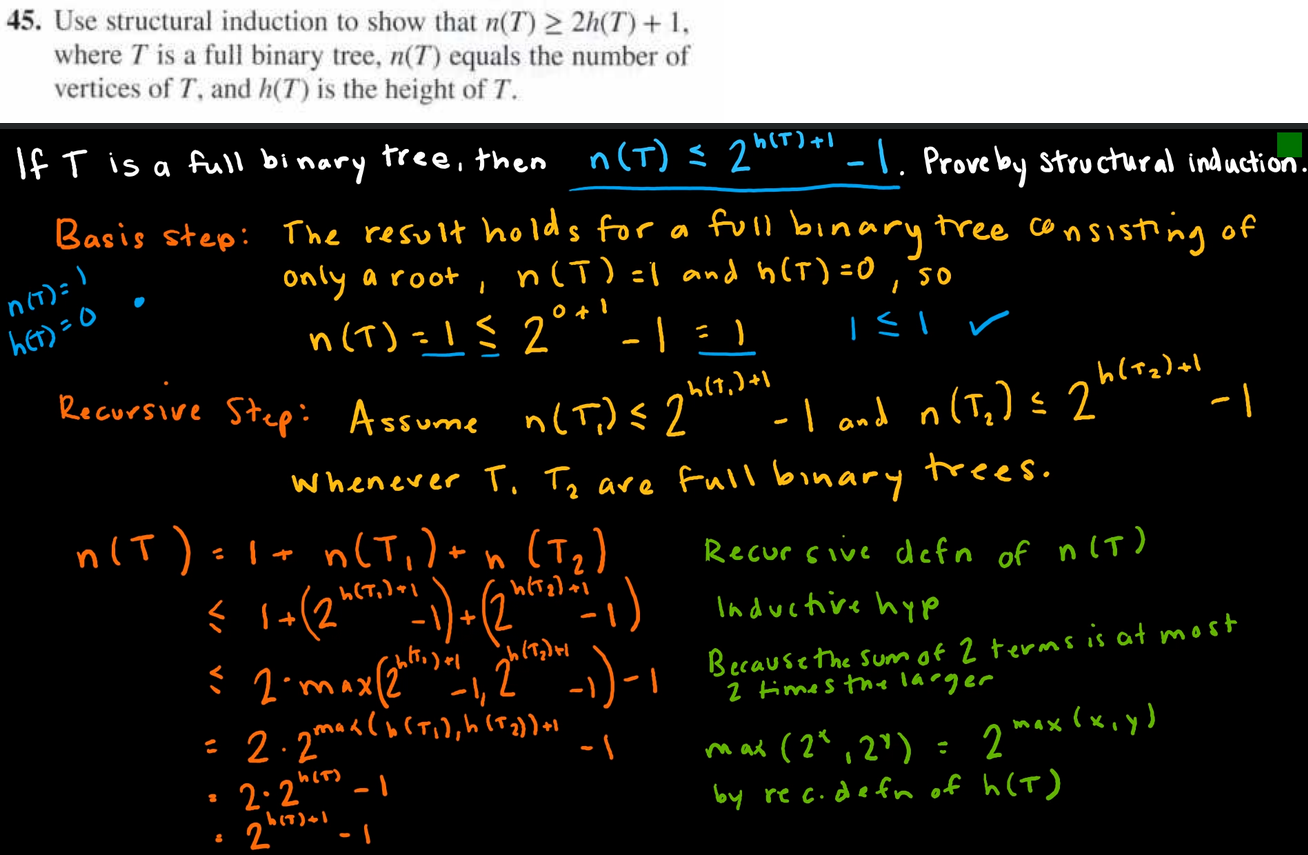 45. Use structural induction to show that n(T) ≥ 2h(T) + 1,
where T is a full binary tree, n(T) equals the number of
vertices of T, and h(T) is the height of T.
If T is a full binary tree, then n(T) ≤ 2^{h(T)+1} - 1. Prove by structural induction.
Basis step: The result holds for a full binary tree consisting of
only a root, n(T) = 1 and h(T) = 0, so
n(T) = 1
h(T) = 0
n(T) = 1 ≤ 2^{0+1} - 1 = 1 1 ≤ 1 ✓
Recursive Step: Assume n(T₁) ≤ 2^{h(T₁)+1} - 1 and n(T₂) ≤ 2^{h(T₂)+1} - 1
whenever T₁ T₂ are full binary trees.
n(T) = 1 + n(T₁) + n(T₂) Recursive defn of n(T)
≤ 1 + (2^{h(T₁)+1} - 1) + (2^{h(T₂)+1} - 1) Inductive hyp
≤ 2·max(2^{h(T₁)+1} - 1, 2^{h(T₂)+1} - 1) - 1 Because the sum of 2 terms is at most
2 times the larger
= 2·2^{max(h(T₁), h(T₂))+1} - 1 max(2^x, 2^y) = 2^{max(x,y)}
= 2·2^{h(T)} - 1 by rec. defn of h(T)
= 2^{h(T)+1} - 1